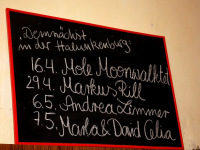 Demnächst
in der Halunkenburg:
16.4. Mole Moonwalktet
29.4. Markus Rill
6.5. Andrea Zimmer
7.5. Marla & David Celia